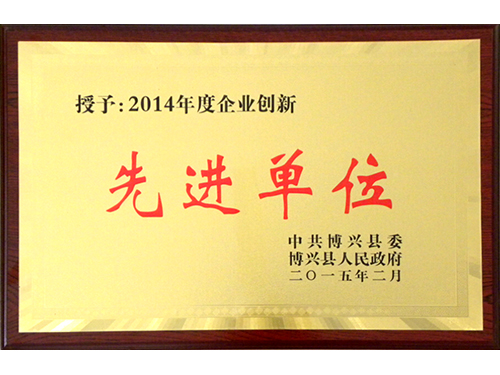 授予:2014年度企业创新
先进单位
中共博兴县委
博兴县人民政府
二〇一五年二月